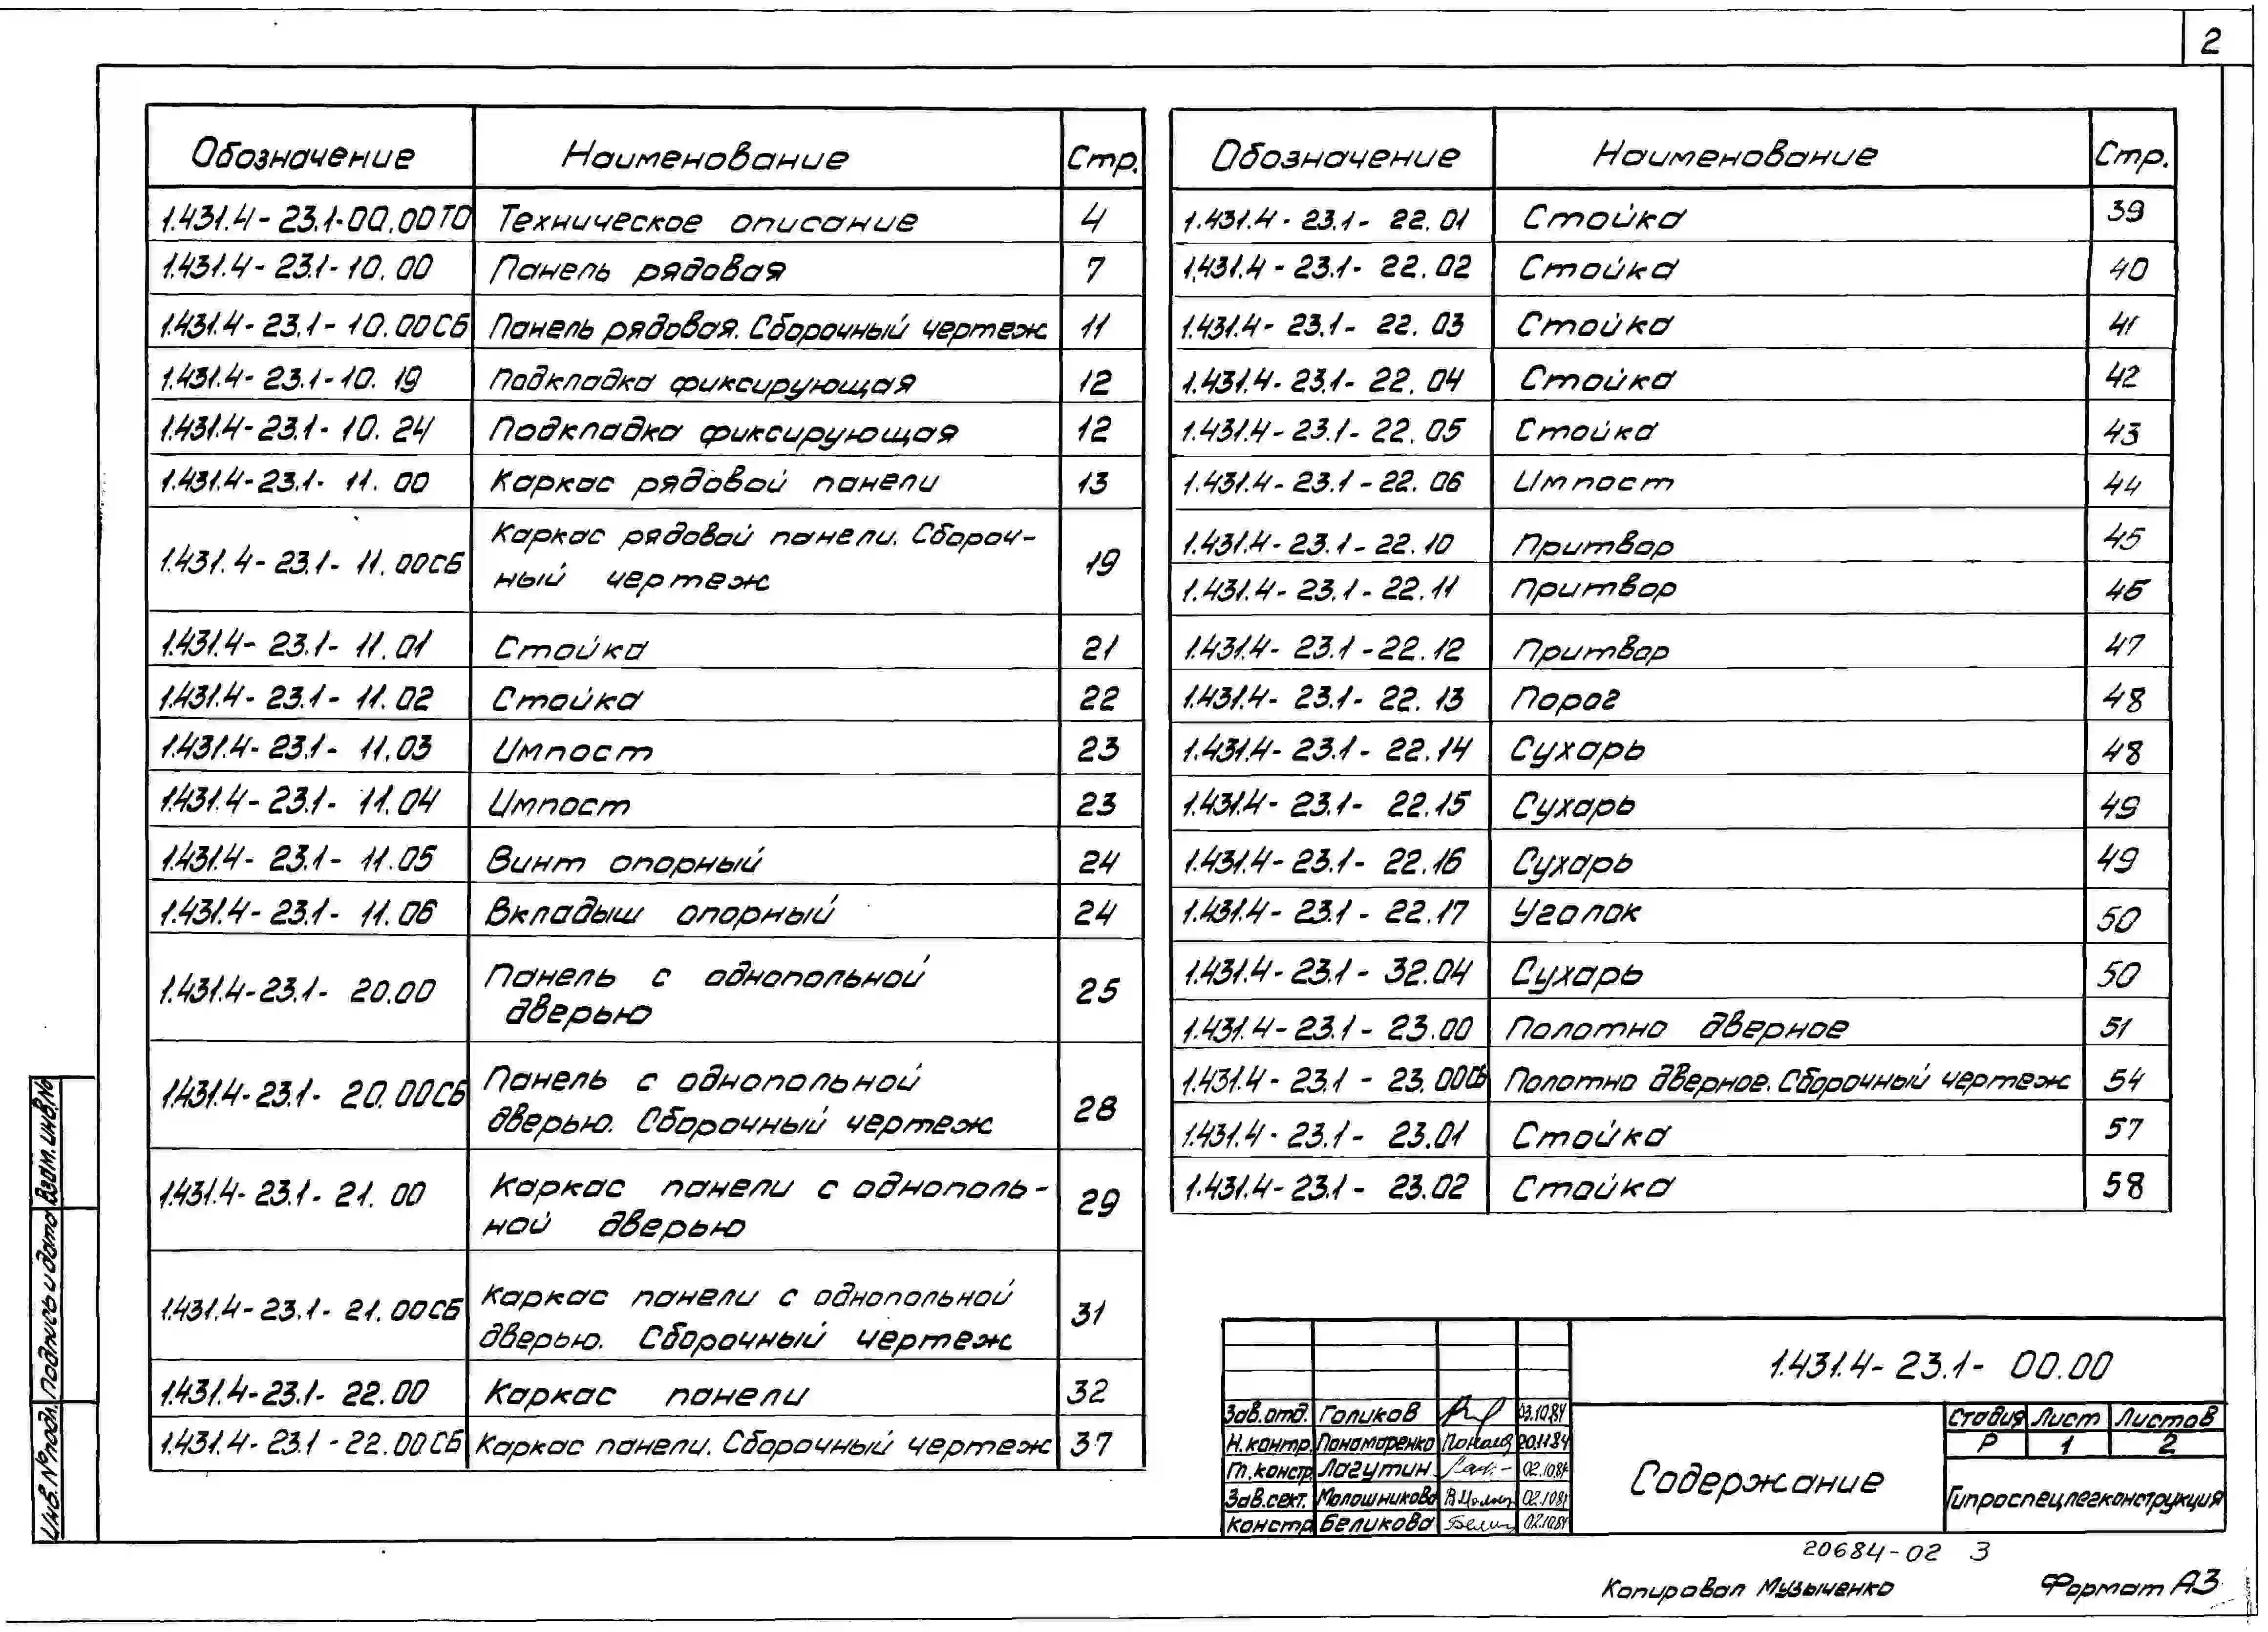 2
Обозначение Наименование Стр.
1.431.4-23.1-00.00ТО Техническое описание 4
1.431.4-23.1-10.00 Панель рядовая 7
1.431.4-23.1-10.00СБ Панель рядовая. Сборочный чертеж 11
1.431.4-23.1-10.19 Подкладка фиксирующая 12
1.431.4-23.1-10.24 Подкладка фиксирующая 12
1.431.4-23.1-11.00 Каркас рядовой панели 13
1.431.4-23.1-11.00СБ Каркас рядовой панели. Сбороч-
ный чертеж 19
1.431.4-23.1-11.01 Стойка 21
1.431.4-23.1-11.02 Стойка 22
1.431.4-23.1-11.03 Импост 23
1.431.4-23.1-11.04 Импост 23
1.431.4-23.1-11.05 Винт опорный 24
1.431.4-23.1-11.06 Вкладыш опорный 24
1.431.4-23.1-20.00 Панель с однопольной
дверью 25
1.431.4-23.1-20.00СБ Панель с однопольной
дверью. Сборочный чертеж 28
1.431.4-23.1-21.00 Каркас панели с однополь-
ной дверью 29
1.431.4-23.1-21.00СБ Каркас панели с однопольной
дверью. Сборочный чертеж 31
1.431.4-23.1-22.00 Каркас панели 32
1.431.4-23.1-22.00СБ Каркас панели. Сборочный чертеж 37
Обозначение Наименование Стр.
1.431.4-23.1-22.01 Стойка 39
1.431.4-23.1-22.02 Стойка 40
1.431.4-23.1-22.03 Стойка 41
1.431.4-23.1-22.04 Стойка 42
1.431.4-23.1-22.05 Стойка 43
1.431.4-23.1-22.06 Импост 44
1.431.4-23.1-22.10 Притвор 45
1.431.4-23.1-22.11 Притвор 46
1.431.4-23.1-22.12 Притвор 47
1.431.4-23.1-22.13 Порог 48
1.431.4-23.1-22.14 Сухарь 48
1.431.4-23.1-22.15 Сухарь 49
1.431.4-23.1-22.16 Сухарь 49
1.431.4-23.1-22.17 Уголок 50
1.431.4-23.1-32.04 Сухарь 50
1.431.4-23.1-23.00 Полотно дверное 51
1.431.4-23.1-23.00СБ Полотно дверное. Сборочный чертеж 54
1.431.4-23.1-23.01 Стойка 57
1.431.4-23.1-23.02 Стойка 58
Взам. инв.№
Подпись и дата
Инв.№ подл.
1.431.4-23.1-00.00
Зав.отд. Голиков 03.10.84
Н.контр. Пономаренко 20.11.84
Гл.констр. Лагутин 02.10.84
Зав.сект. Молошникова 02.10.84
Констр. Беликова 02.10.84
Содержание
Стадия Лист Листов
Р 1 2
Гипроспецлегконструкция
20684-02 3
Копировал Музыченко Формат А3